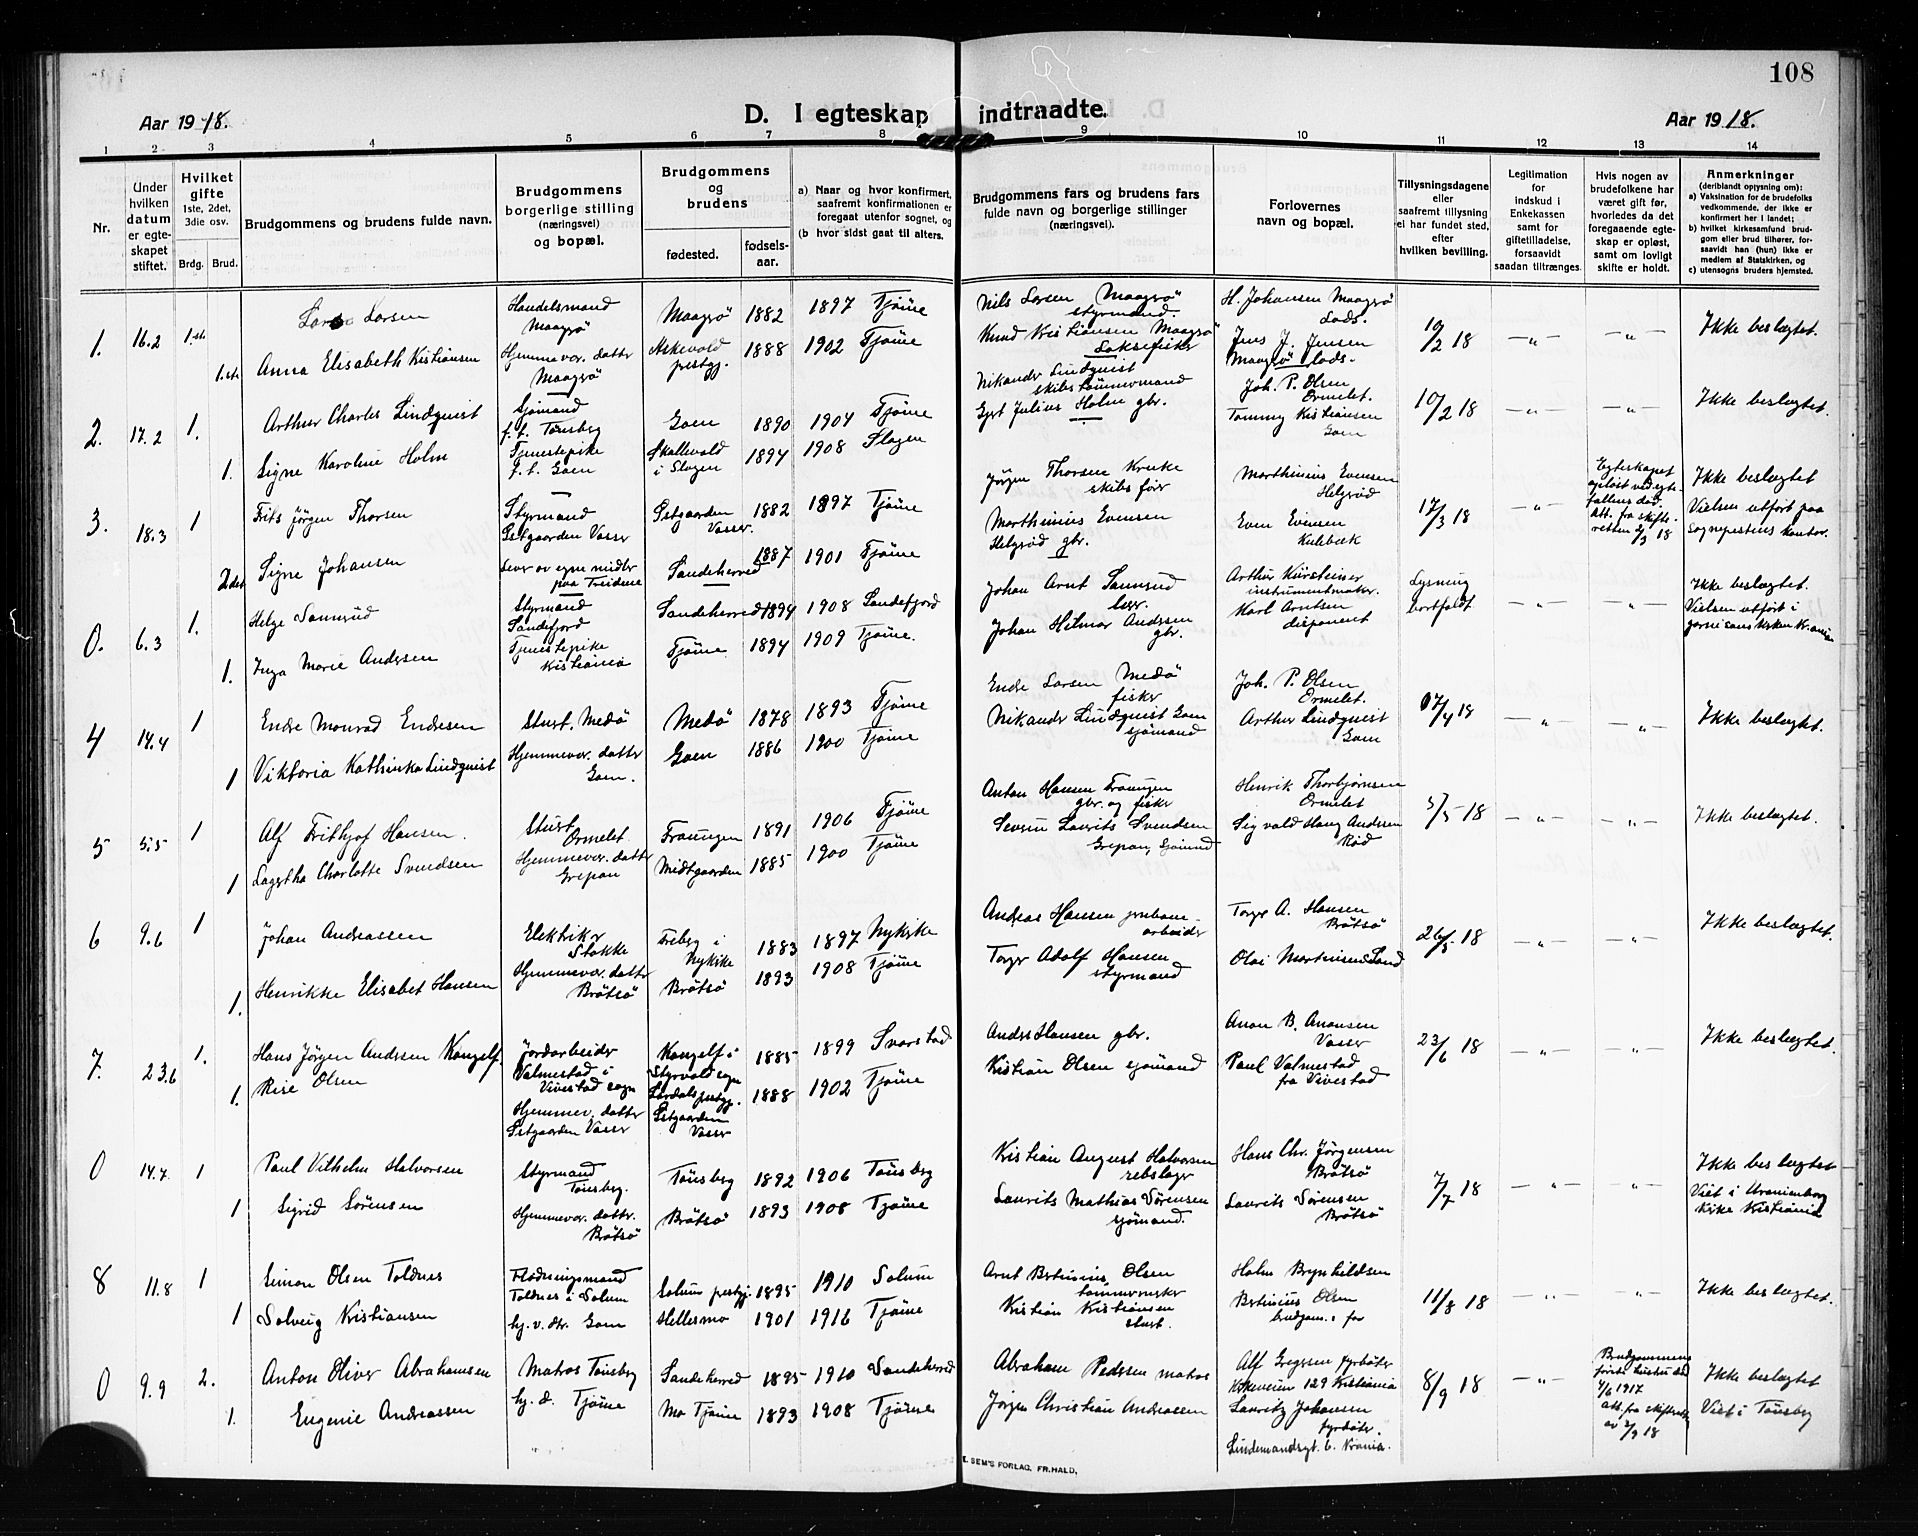 108
Aar 1918.
D. I egteskap indtraadte.
Aar 1918.
1 2 3 4 5 6 7 8 9 10 11 12 13 14
Nr.
Under hvilken datum er egteskapet stiftet.
Hvilket gifte 1ste, 2det, 3die osv.
Brdg. Brud.
Brudgommens og brudens fulde navn.
Brudgommens borgerlige stilling (næringsvei) og bopæl.
Brudgommens og brudens
fødested. fødsels-aar.
a) Naar og hvor konfirmert, saafremt konfirmationen er foregaat utenfor sognet, og
b) hvor sidst gaat til alters.
Brudgommens fars og brudens fars fulde navn og borgerlige stillinger (næringsvei).
Forlovernes navn og bopæl.
Tillysningsdagene eller saafremt tillysning ei har fundet sted, efter hvilken bevilling.
Legitimation for indskud i Enkekassen samt for giftetilladelse, forsaavidt saadan tiltrænges.
Hvis nogen av brudefolkene har været gift før, hvorledes da det foregaaende egteskap er opløst, samt om lovligt skifte er holdt.
Anmerkninger (deriblandt oplysning om):
a) Vaksination for de brudefolks vedkommende, der ikke er konfirmert her i landet;
b) hvilket kirkesamfund brudgom eller brud tilhører, forsaavidt han (hun) ikke er medlem af Statskirken, og
c) utensogns bruders hjemsted.
1. 16.2 1.st. Lars Larsen Handelsmand Maagerø Maagerø 1882 1897 Tjøme Nils Larsen Maagerø styrmand H. Johansen Maagerø Lods. 10/2 18 — „ — — „ — Ikke beslegtet.
1.ste Anna Elisabeth Kristiansen Hjemmevær. datter Maagerø Askevold prestgj. 1888 1902 Tjøme Knud Kristiansen Maagerø Laksefisker Jens J. Jensen Maagerø Lods.
2. 17.2 1. Arthur Charles Lindquist Sjømand f. t. Tønsberg Goen 1890 1904 Tjøme Nikander Lindquist skibstømmermand Joh. P. Olsen Ormelet. 10/2 18 — „ — — „ — Ikke beslegtet.
1. Signe Karoline Holm Tjenestepike f. t. Goen Skallevold i Slagen 1894 1908 Slagen Gjert Julius Holm gbr. Tommy Kristiansen Goen
3. 18.3 1 Frits Jørgen Thorsen Styrmand Østgaarden Vasser Østgaarden Vasser. 1882 1897 Tjøme Jørgen Thorsen Kruke skibsfører Marthinius Evensen Helgerød 17/3 18 — „ — Egteskapet opløst ved egtefællens død. Att. fra skifteretten 2/3 18 Ikke beslegtet Vielsen utført paa Sogneprestens kontor.
2det Signe Johansen Lever av egne midler paa Treidene Sandeherred 1887 1901 Tjøme Marthinius Evensen Helgerød gbr. Even Evensen Kulebæk
0. 6.3 1. Helge Samsrud Styrmand Sandefjord Sandeherred 1894 1908 Sandefjord Johan Arnt Samsrud Arthur Kürsteiner instrumentmaker. Lysning bortfaldt — „ — — „ — Ikke beslegtet. Vielsen utført i garnisonskirken Kr.ania
1. Inga Marie Andersen Tjenestepike Kristiania Tjøme 1894 1909 Tjøme. Johan Hilmar Andersen gbr. Karl Arntsen disponent
4 14.4 1 Endre Monrad Endresen Stuert. Medø Medø 1878 1893 Tjøme Endre Larsen Medø fisker Joh. P. Olsen Ormelet. 07/4 18 — „ — — „ — Ikke beslegtet.
1 Viktoria Kathinka Lindquist Hjemmevær. datter Goen. Goen 1886 1900 Tjøme Nikander Lindquist Goen sjømand Arthur Lindquist Goen
5 5.5 1 Alf Frithjof Hansen. Stuert Ormelet Fraungen 1891 1906 Tjøme Anton Hansen Fraungen gbr. og fisker Henrik Thorbjørnsen Ormelet 5/5 18 — „ — — „ — Ikke beslegtet.
1 Lagertha Charlotte Svendsen Hjemmevær. datter Grepan Midtgaarden 1885 1900 Tjøme Severin Laurits Svendsen Grepan, sjømand Sigvald Haug Andersen Rød
6 9.6 1 Johan Andreassen Elektriker Stokke Freberg i Nykirke 1883 1897 Nykirke Andreas Hansen jernbanearbeider Torger A. Hansen Brøtsø 26/5 18 — „ — — „ — Ikke beslegtet.
1. Henrikke Elisabet Hansen Hjemmevær. datter Brøtsø Brøtsø 1893 1908 Tjøme Torger Adolf Hansen styrmand Olai Martinsen Sand
7. 23.6 1. Hans Jørgen Andersen Kongelf Jordarbeider Valmestad i Vivestad sogn Kongelf i Styrvold sogn Lardals prestgj. 1885 1899 Svarstad Anders Hansen gbr. Anon B. Anonsen Vasser 23/6 18 — „ — — „ — Ikke beslegtet.
1. Risé Olsen Hjemmev. datter Østgaarden Vasser Østgaarden Vasser 1888 1902 Tjøme Kristian Olsen sjømand Paul Valmestad fra Vivestad
0 14.7 1 Paul Vilhelm Halvorsen Styrmand Tønsberg. Tønsberg 1892 1906 Tønsberg Kristian August Halvorsen rebslager Hans Chr. Jørgensen Brøtsø 7/7 18 — „ — — „ — Ikke beslegtet Viet i Uranienborg kirke Kristiania
1 Sigrid Sørensen Hjemmevær. datter. Brøtsø Brøtsø 1893 1908 Tjøme Laurits Mathias Sørensen sjømand. Laurits Sørensen Brøtsø
8 11.8 1 Simon Olsen Toldnes Fløtningsmand Toldnes i Solum Solum prestgj. 1895 1910 Solum Arnt Bertinius Olsen tømmermerker Holm Brynhildsen 11/8 18 — „ — — „ — Ikke beslegtet.
1 Solveig Kristiansen hj. v. dtr. Goen Hellesmo 1901 1916 Tjøme Kristian Kristiansen stuert. Bertinius Olsen brudgom.s far
0 9.9 2. Anton Oliver Abrahamsen Matros Tønsberg Sandeherred 1895 1910 Sandeherred Abraham Pedersen matros Alf Gregersen fyrbøter Kirkeveien 129 Kristiania 8/9 18 — „ — Brudgommens første hustru død 4/6 1917 Att. fra skifteret av 2/9 18 Ikke beslegtet Viet i Tønsberg
1. Eugenie Andreassen hj. d. Tjøme Mo Tjøme 1893 1908 Tjøme Jørgen Christian Andreassen Lauritz Johansen fyrbøter. Lindemandsgt. 6. Krania.
E. SEM'S FORLAG, FR.HALD,